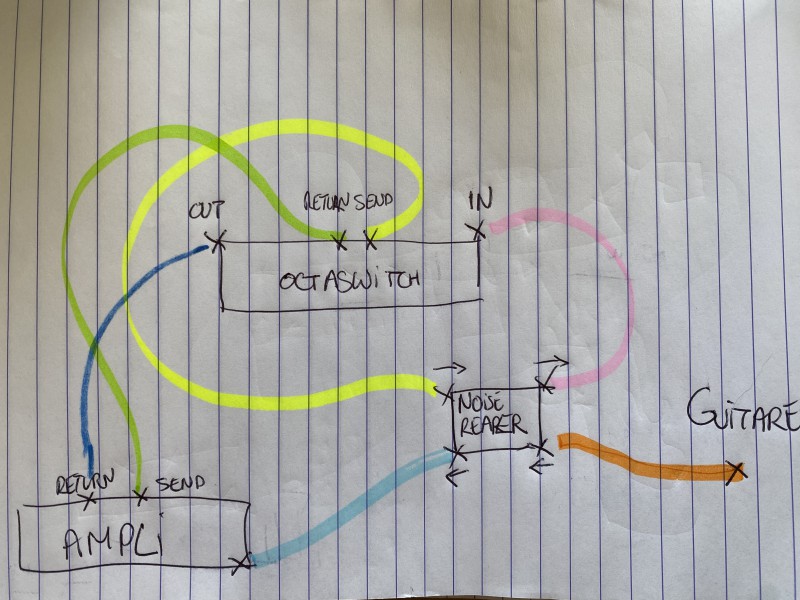 OUT
RETURN SEND
IN
OCTASWITCH
NOISE
REAPER
GUITARE
RETURN
SEND
AMPLI